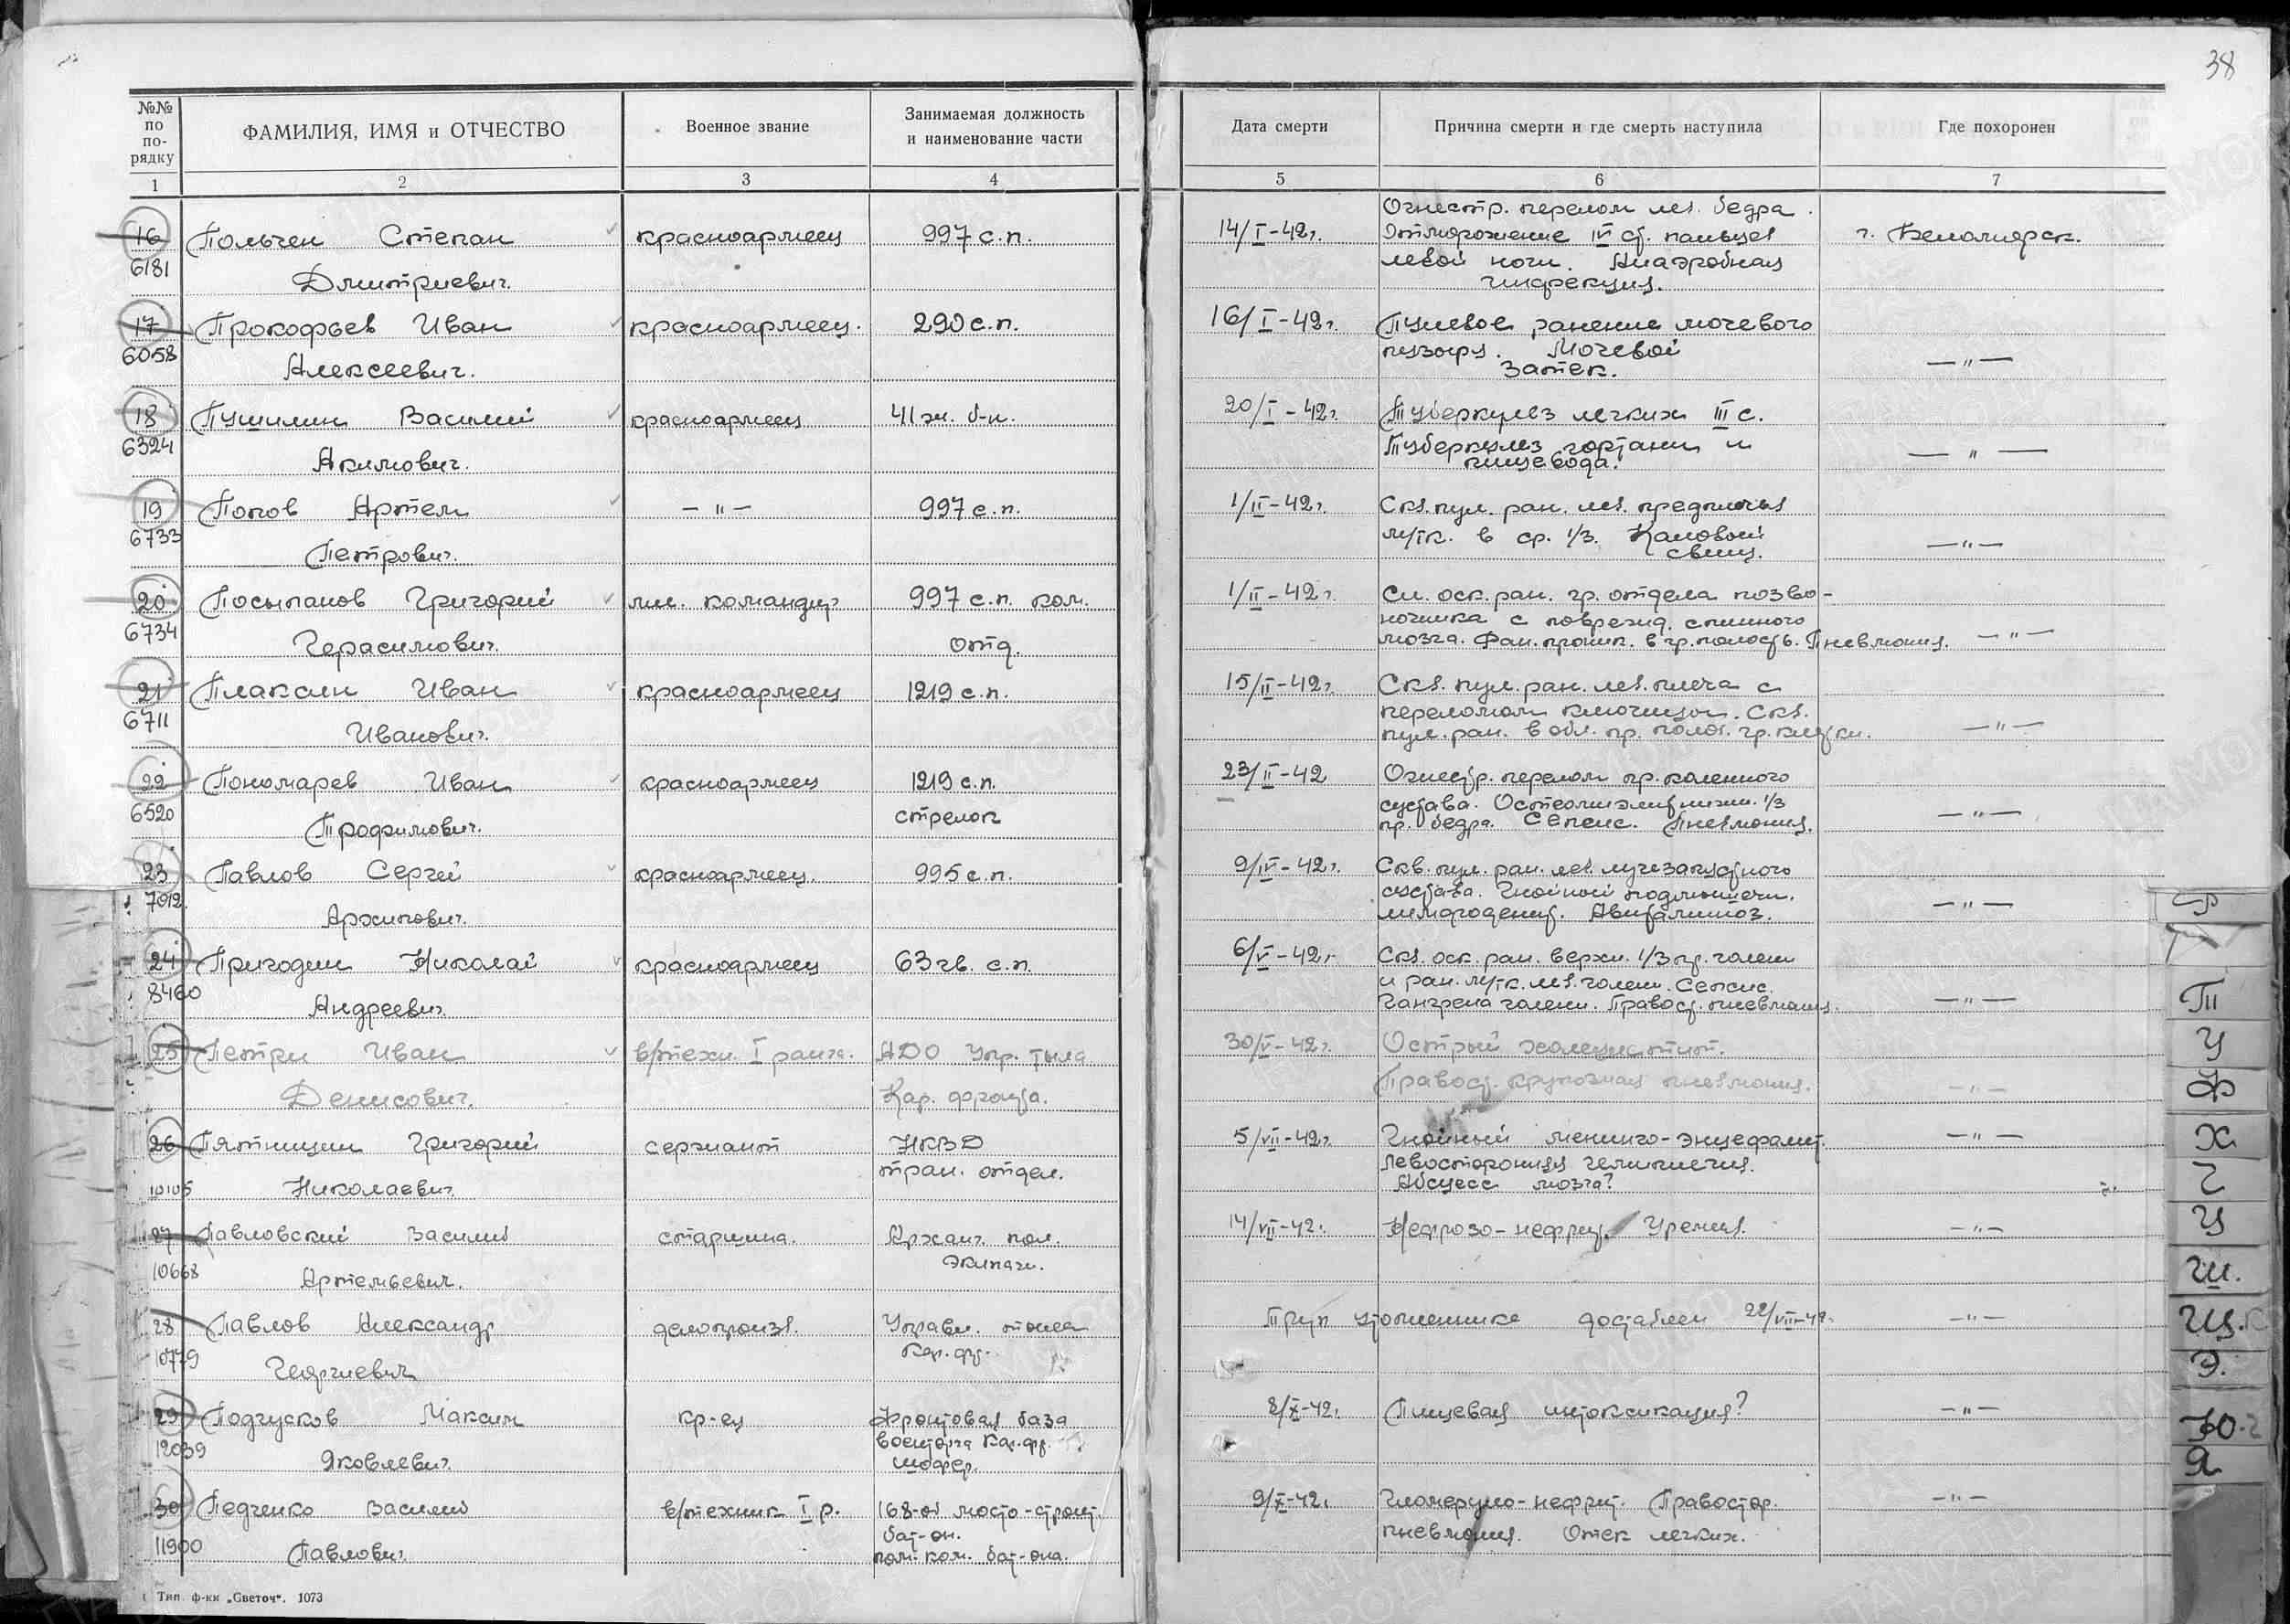 38
№№ по по-рядку
ФАМИЛИЯ, ИМЯ и ОТЧЕСТВО
Военное звание
Занимаемая должность и наименование части
Дата смерти
Причина смерти и где смерть наступила
Где похоронен
1 2 3 4 5 6 7
16 Польчен Степан красноармеец 997 с.п. 14/I-42г. Огнестр. перелом лев. бедра. г. Беломорск.
6181 Дмитриевич. Отморожение IV ст. пальцев
левой ноги. Анаэробная
инфекция.
17 Прокофьев Иван красноармеец. 290 с.п. 16/I-42г. Пулевое ранение мочевого
6058 Алексеевич. пузыря. Мочевой — " —
затек.
18 Пушилин Василий красноармеец 41 ж. б-н. 20/I-42г. Туберкулез легких III с.
6324 Акимович. Туберкулез гортани и — " —
пищевода.
19 Попов Артем — " — 997 с.п. 1/II-42г. Скв. пул. ран. лев. предплечья
6733 Петрович. м/тк. в ср. 1/3. Каловый — " —
свищ.
20 Посыпанов Григорий мл. командир 997 с.п. ком. 1/II-42г. Сл. оск. ран. гр. отдела позво-
6734 Герасимович. отд. ночника с поврежд. спинного
мозга. проник. в гр. полость. Пневмония. — " —
21 Плаксин Иван красноармеец 1219 с.п. 15/II-42г. Скв. пул. ран. лев. плеча с
6711 Иванович. переломом ключицы. Скв.
пул. ран. в обл. пр. полов. гр. клетки. — " —
22 Пономарев Иван красноармеец 1219 с.п. 23/II-42 Огнестр. перелом пр. коленного
6520 Трофимович. стрелок сустава. Остеомиэлит нижн. 1/3
пр. бедра. Сепсис. Пневмония. — " —
23 Павлов Сергей красноармеец. 995 с.п. 9/IV-42г. Скв. пул. ран. лев. лучезапястного
7912. Архипович. сустава. Гнойный подмышечн.
лимфоденит. Авитаминоз. — " —
24 Пригодин Николай красноармеец 63 гв. с.п. 6/V-42г. Скв. оск. ран. верхн. 1/3 пр. голени
8460 Андреевич. и ран. м/тк. лев. голени. Сепсис.
Гангрена голени. Правост. пневмония. — " —
25 Петри Иван в/техн. I ранга. АДО Упр. тыла 30/V-42г. Острый холецистит.
Денисович. Кар. фронта. Правост. крупозная пневмония. — " —
26 Пятницин Григорий сержант НКВД 5/VII-42г. Гнойный менинго-энцефалит. — " —
10105 Николаевич тран. отдел. Левосторонняя гемиплегия.
Абсцесс мозга?
27 Павловский Василий старшина. Арханг. пол. 14/VII-42г. Нефрозо-нефрит. Уремия. — " —
10668 Артемьевич. экипаж.
28 Павлов Александр делопроизв. Управл. тыла Труп утопленника доставлен 22/VIII-42г. — " —
10779 Георгиевич Кар. фр.
29 Подгусков Максим кр-ец Фронтовая база 8/X-42г. Пищевая интоксикация? — " —
12039 Яковлевич. военторга Кар. фр.
шофер.
30 Педченко Василий в/техник I р. 168-ой мосто-строит. 9/X-42г. Гломеруло-нефрит. Правостор. — " —
11900 Павлович. бат-он. пневмония. Отек легких.
пом. ком. бат-она.
Тип. ф-ки „Светоч“. 1073
Т
У
Ф
Х
Г
Ц
Ш.
Щ.
Э.
Ю
Я